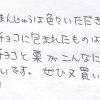 まんじゅうは色々いただき
チョコに包まれたものは
チョコと栗がこんなに
いです。ぜひ又買い